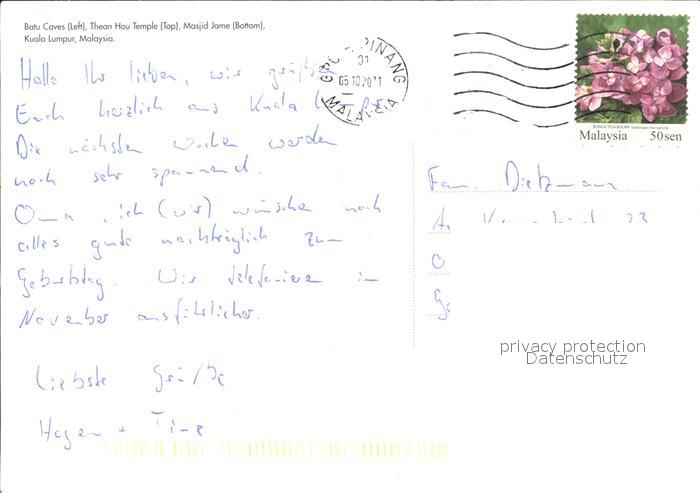 Batu Caves (Left), Thean Hou Temple (Top), Masjid Jame (Bottom),
Kuala Lumpur, Malaysia.
Hallo Ihr lieben, wir grüßen
Euch herzlich aus Kuala
Die nächsten Wochen werden
noch sehr spannend.
Oma, ich (wir) wünschen noch
alles gute nachträglich zum
Geburtstag. Wir telefonieren im
November ausführlicher.
Liebste Grüße
Hagen + Tine
PINANG
01
05 10 2011
MALAYSIA
BUNGA TIGA BULAN
Malaysia 50sen
Fam. Dietzmann
privacy protection
Datenschutz